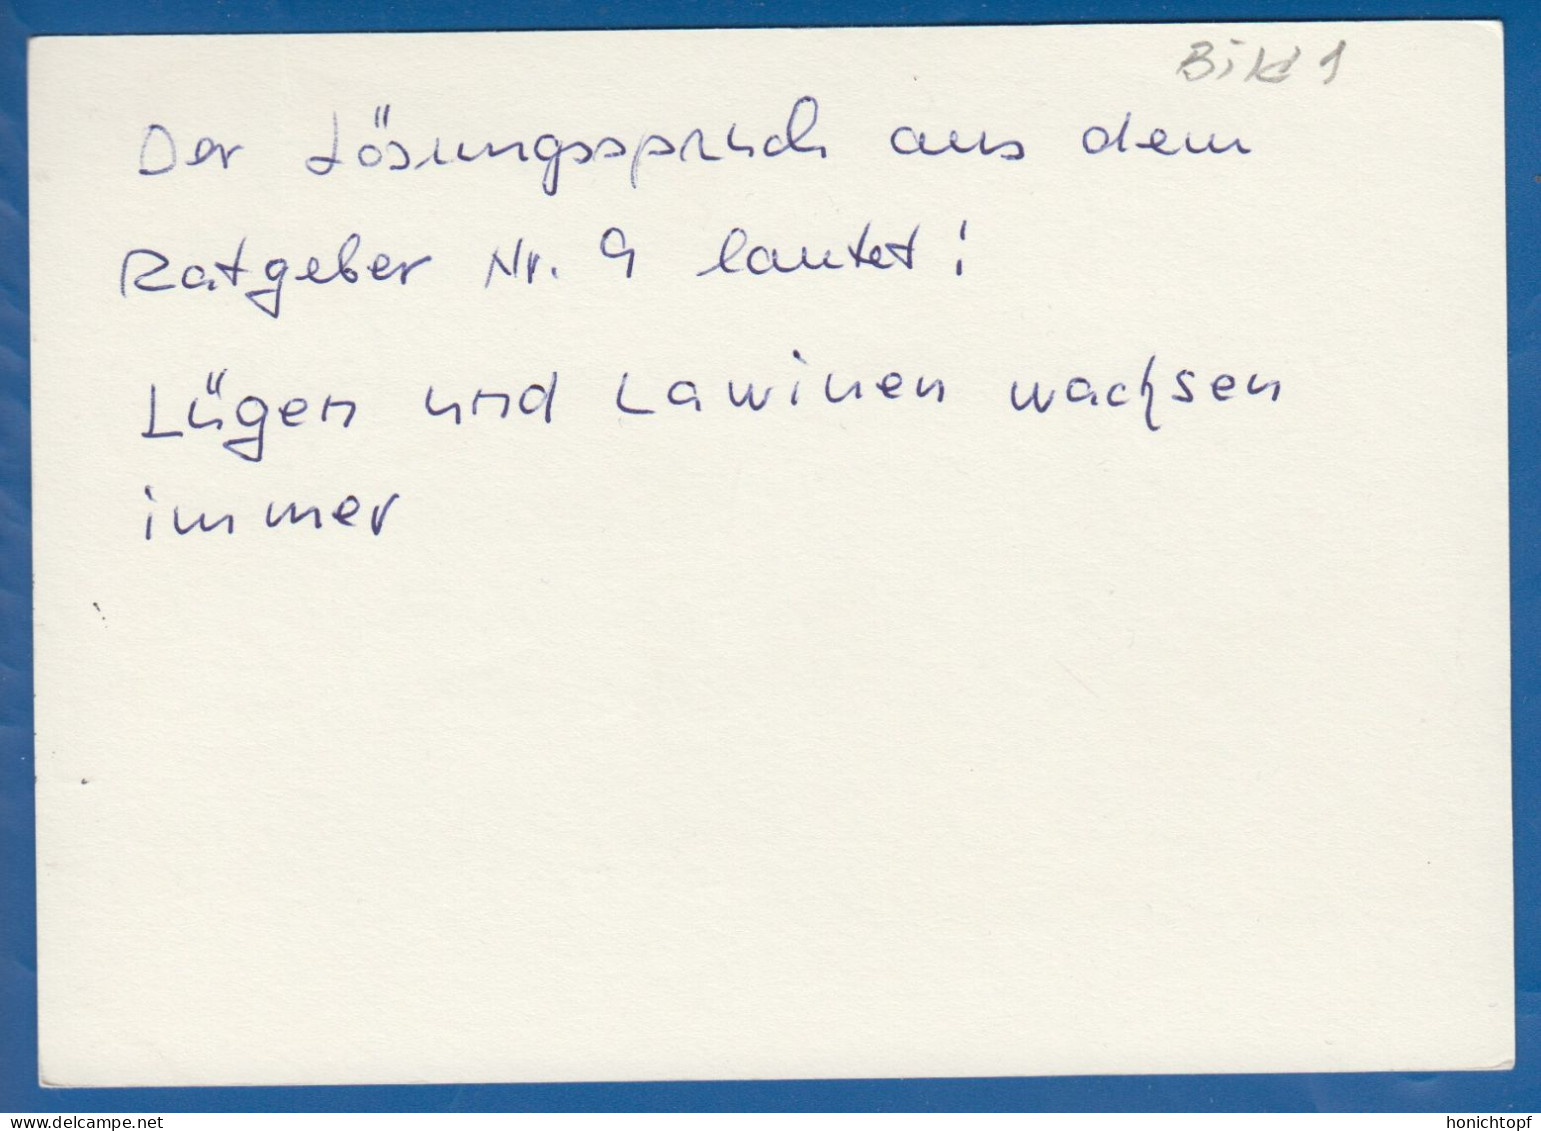 Bild 1
Der Lösungsspruch aus dem
Ratgeber Nr. 9 lautet:
Lügen und Lawinen wachsen
immer
www.delcampe.net
honichtopf